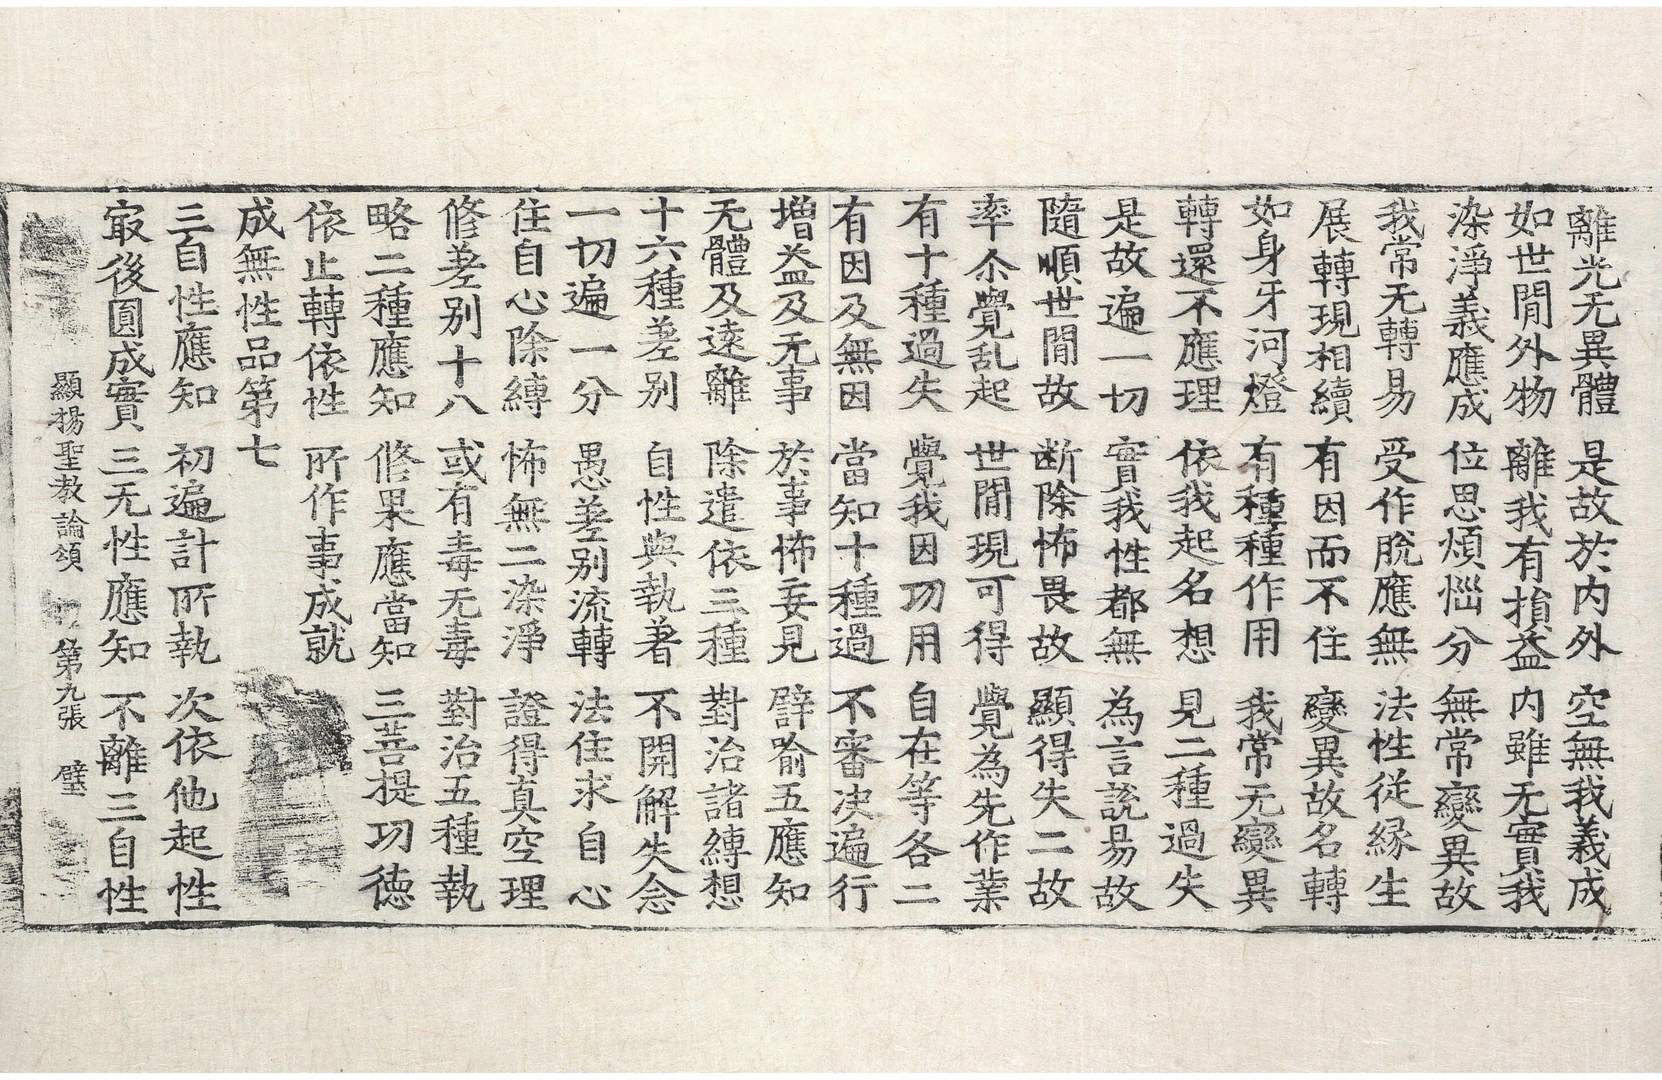 離光无異體是故於内外空無我義成
如世間外物離我有損益内雖无實我
染淨義應成位思煩惱分無常變異故
我常无轉易受作脫應無法性從緣生
展轉現相續有因而不住變異故名轉
如身牙河燈有種種作用我常无變異
轉還不應理依我起名想見二種過失
是故遍一切實我性都無為言說易故
隨順世間故断除怖畏故顯得失二故
率尒覺乱起世間現可得覺為先作業
有十種過失覺我因功用自在等各二
有因及無因當知十種過不審決遍行
增益及无事於事怖妄見譬喻五應知
无體及遠離除遣依三種對治諸縛想
十六種差别自性與執著不開解失念
一切遍一分愚差别流轉法住求自心
住自心除縛怖無二染淨證得真空理
修差别十八或有毒无毒對治五種執
略二種應知修果應當知三菩提功德
依止轉依性所作事成就
成無性品第七
三自性應知初遍計所執次依他起性
㝡後圓成實三无性應知不離三自性
顯揚聖教論頌 第九張 璧